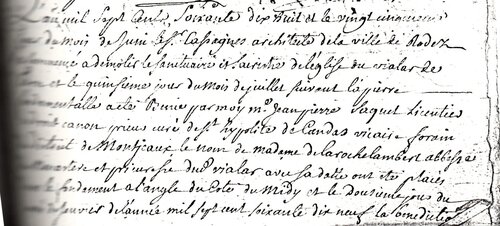 mil Sept Cents Soixante dix huit et le vingt
du mois de Juin Sr. Cassagnes architecte de la ville de Rodez
a demoli le sanctuaire et sacristie de l'eglise du vialar
et le quinsieme jour du mois de juillet suivant la pierre
a été Benie par moy mr. Jean pierre Saquet licentié
droit canon prieur curé de St. hypolite de Candas vicaire forain
de Montjaux le nom de madame de la rochelambert abbesse
et prieuresse du vialar avec sa datte ont été placés
fondement a l'angle du Coté du Midy et le dousieme jour du
de l'année mil sept cent soixante dix neuf la benedictio